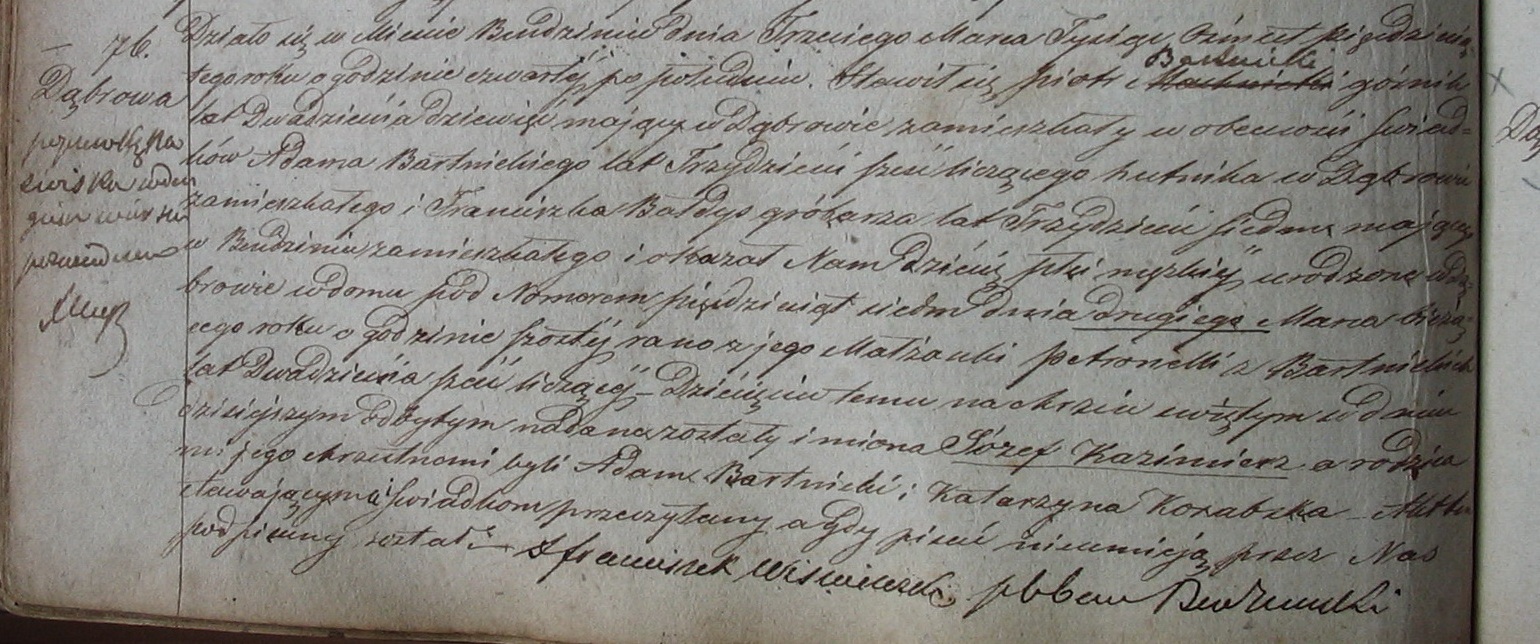 76.
Dąbrowa
Działo się w Mieście Bendzinie dnia Trzeciego Marca Tysiąc Ośmset pięćdziesią-
tego roku o godzinie czwartéj po południu. Stawił się Piotr Bartnicki górnik
lat Dwadzieścia dziewięć mający w Dąbrowie zamieszkały w obecności świad-
ków Adama Bartnickiego lat Trzydzieści sześć liczącego hutnika w Dąbrowie
zamieszkałego i Franciszka Bałdys gróbarza lat Trzydzieści siedm mającego
w Bendzinie zamieszkałego i okazał Nam dziecię płci męzkiéj urodzone w Dą-
browie w domu pod Nomerem pięćdziesiąt siedm dnia drugiego Marca bieżą-
cego roku o godzinie szostéj rano z jego Małżonki Petronelli z Bartnickich
lat Dwadzieścia sześć liczącéj – Dziecięciu temu na chrzcie świętym w dniu
dzisiejszym odbytym nadane zostały imiona Józef Kazimierz a rodzica
mi jego chrzestnemi byli Adam Bartnicki i Katarzyna Korabska – Akt ten
stawającym i świadkom przeczytany a gdy pisać nieumieją przez Nas
podpisany został –
X Franciszek pleban Bendzinski